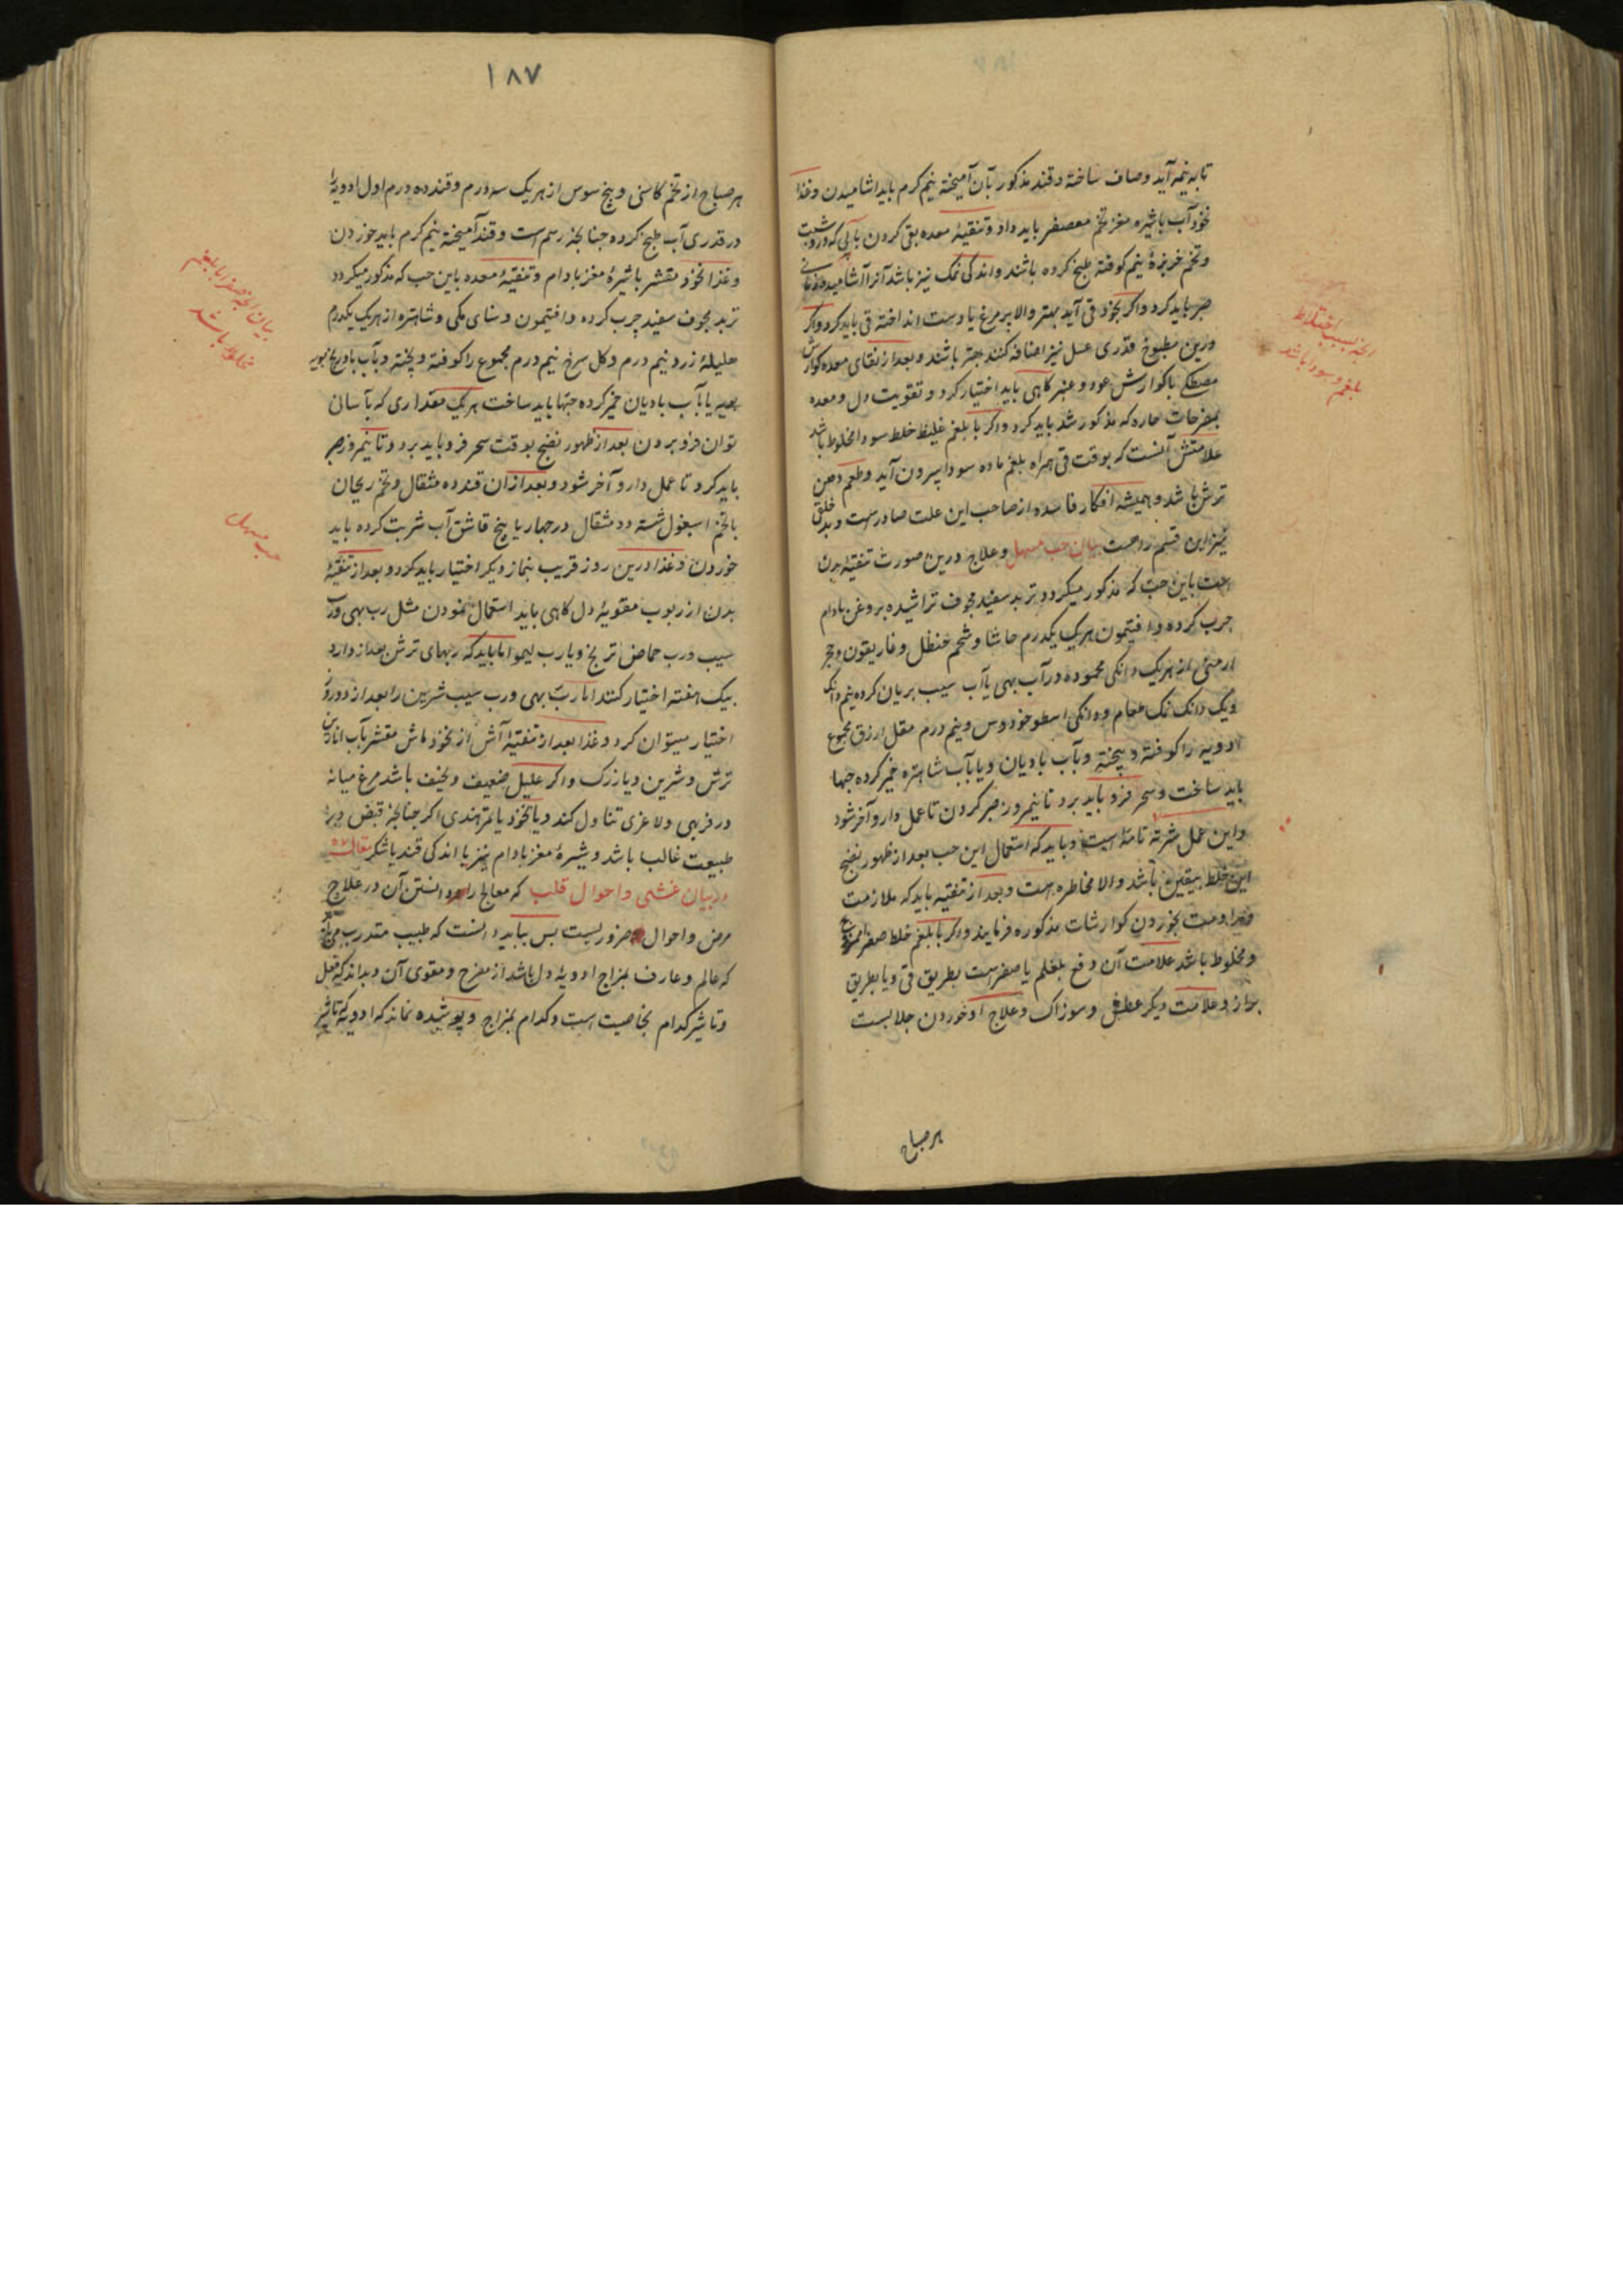 تا به نیمه آید و صاف ساخته و قند مذکور بآن آمیخته نیم کرم باید اشامیدن و غذا
نخود آب با شیره مغز تخم معصفر باید داد و تنقیهٔ معده بقی کردن بآبی که درو شبت
و تخم خربزهٔ نیم کوفته طبخ کرده باشند و اندکی نمک نیز باشد آنرا آشامیده زمانی
صبر باید کرد و اکر بخود قی آید بهتر والا پر مرغ یا دست انداخته قی باید کرد و اکر
درین مطبوخ قدری عسل نیز اضافه کنند بهتر باشد و بعد از نقای معده کوارش
مصطکی یا کوارش عود و عنبر کاهی باید اختیار کرد و تقویت دل و معده
بمفرحات حاره که مذکور شد باید کرد و اکر با بلغم غلیظ خلط سودا مخلوط باشد
علامتش آنست که بوقت قی همراه بلغم ماده سودا بیرون آید و طعم دهن
ترش باشد و همیشه افکار فاسده از صاحب این علت صادرست و بد خلقی
نیز این قسم راست بیان حب مسهل و علاج درین صورت تنقیهٔ بدن
است باین حب که مذکور میکردد تربد سفید مجوف تراشیده بروغن بادام
چرب کرده و افتیمون هر یک یکدرم حاشا و شحم حنظل و غاریقون و حجر
ارمنی از هریک دانکی محموده در آب بهی یا آب سیب بریان کرده نیم دانک
و یک دانک نمک طعام و دانکی اسطوخودوس و نیم درم مقل ازرق مجموع
ادویه را کوفته و بیخته و بآب بادیان و یا بآب شاهتره خمیر کرده حبها
باید ساخت و سحر فرو باید برد تا نیمروز صبر کردن تا عمل دارو آخر شود
و این عمل شربة تامهٔ است و باید که استعمال این حب بعد از ظهور نضج
این خلط بیقین باشد والا مخاطره است و بعد از تنقیه باید که ملازمت
و مداومت بخوردن کوارشات مذکوره فرمایند و اکر با بلغم خلط صفرا ممزوج
و مخلوط باشد علامت آن دفع بلغم یا صفراست بطریق قی و یا بطریق
براز و علامت دیکر عطش و سوزاک و علاج او خوردن جلابست
هر صباح
انچه بسبب اختلاط
بلغم و سودا باشد
۱۸۷
هر صباح از تخم کاسنی و بیخ سوس از هریک سه درم و قند ده درم اول ادویه را
در قدری آب طبخ کرده چنانچه رسم است و قند آمیخته نیم کرم باید خوردن
و غذا نخود مقشر با شیرهٔ مغز بادام و تنقیهٔ معده باین حب که مذکور میکردد
تربد مجوف سفید چرب کرده و افتیمون و سنای مکی و شاهتره از هریک یکدرم
هلیلهٔ زرد نیم درم و کل سرخ نیم درم مجموع را کوفته و بیخته و بآب بادرنجبویه
یا بآب بادیان خمیر کرده حبها باید ساخت هریک مقداری که بآسانی
توان فرو بردن بعد از ظهور نضج بوقت سحر فرو باید برد و تا نیمروز صبر
باید کرد تا عمل دارو آخر شود و بعد از آن قند ده مثقال و تخم ریحان
با تخم اسبغول شسته دو مثقال در چهار یا پنج قاشق آب شربت کرده باید
خوردن و غذا درین روز قریب بنماز دیکر اختیار باید کرد و بعد از تنقیهٔ
بدن از ربوب مقویهٔ دل کاهی باید استعمال نمودن مثل رب بهی و رب
سیب و رب حماض ترنج و یا رب لیمو اما باید که ربهای ترش بعد از دارو
بیک هفته اختیار کنند اما ربّ بهی و رب سیب شرین را بعد از دو روز
اختیار میتوان کرد و غذا بعد از تنقیهٔ آش از نخود ماش مقشر بآب انارین
ترش و شرین و یا زرک و اکر علیل ضعیف و نحیف باشد مرغ میانه
در فربهی و لاغری تناول کند و یا نخود یا تمر هندی اکر چنانچه قبض در
طبیعت غالب باشد و شیرهٔ مغز بادام نیز با اندکی قند یا شکر مقاله
در بیان غشی و احوال قلب که معالج را دانستن آن در علاج
مرض و احوال ضروریست بس بباید دانست که طبیب متدرب می باید
که عالم و عارف بمزاج ادویهٔ دل باشد از مفرح و مقوی آن و بداند که فعل
و تاثیر کدام بخاصیت است و کدام بمزاج و پوشیده نماند که ادویه که تاثیر
بیان انچه صفرا با بلغم
مخلوط باشد
حب مسهل